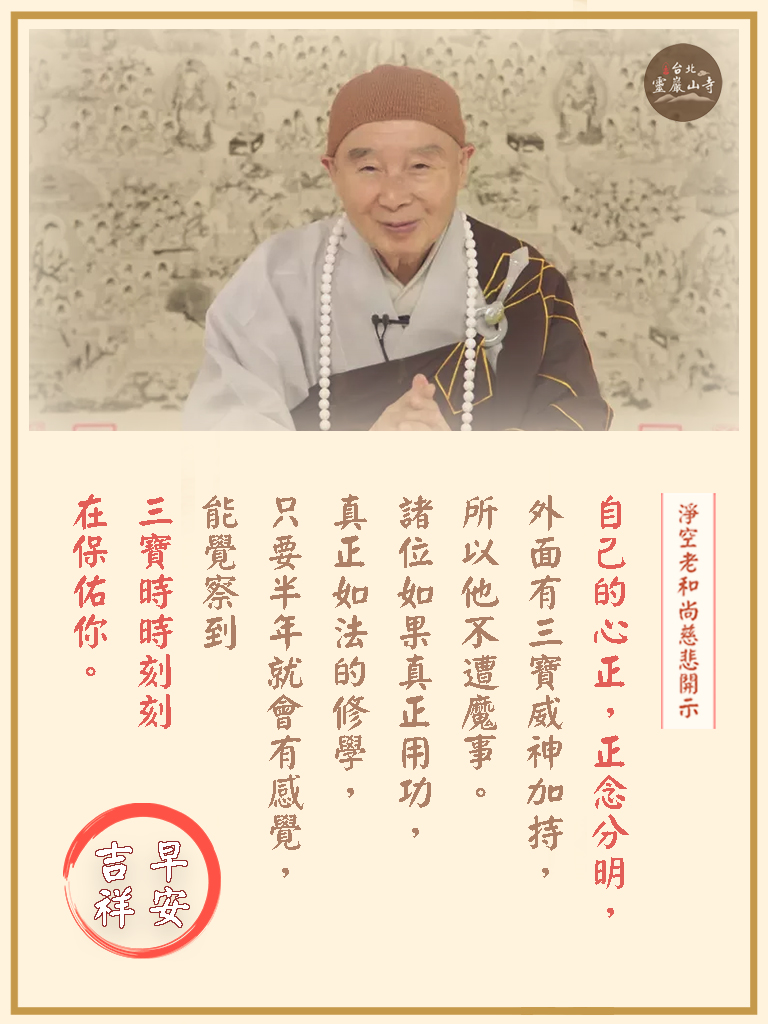 台北
靈巖山寺
淨空老和尚慈悲開示
自己的心正，正念分明，
外面有三寶威神加持，
所以他不遭魔事。
諸位如果真正用功，
真正如法的修學，
只要半年就會有感覺，
能覺察到
三寶時時刻刻
在保佑你。
早安
吉祥